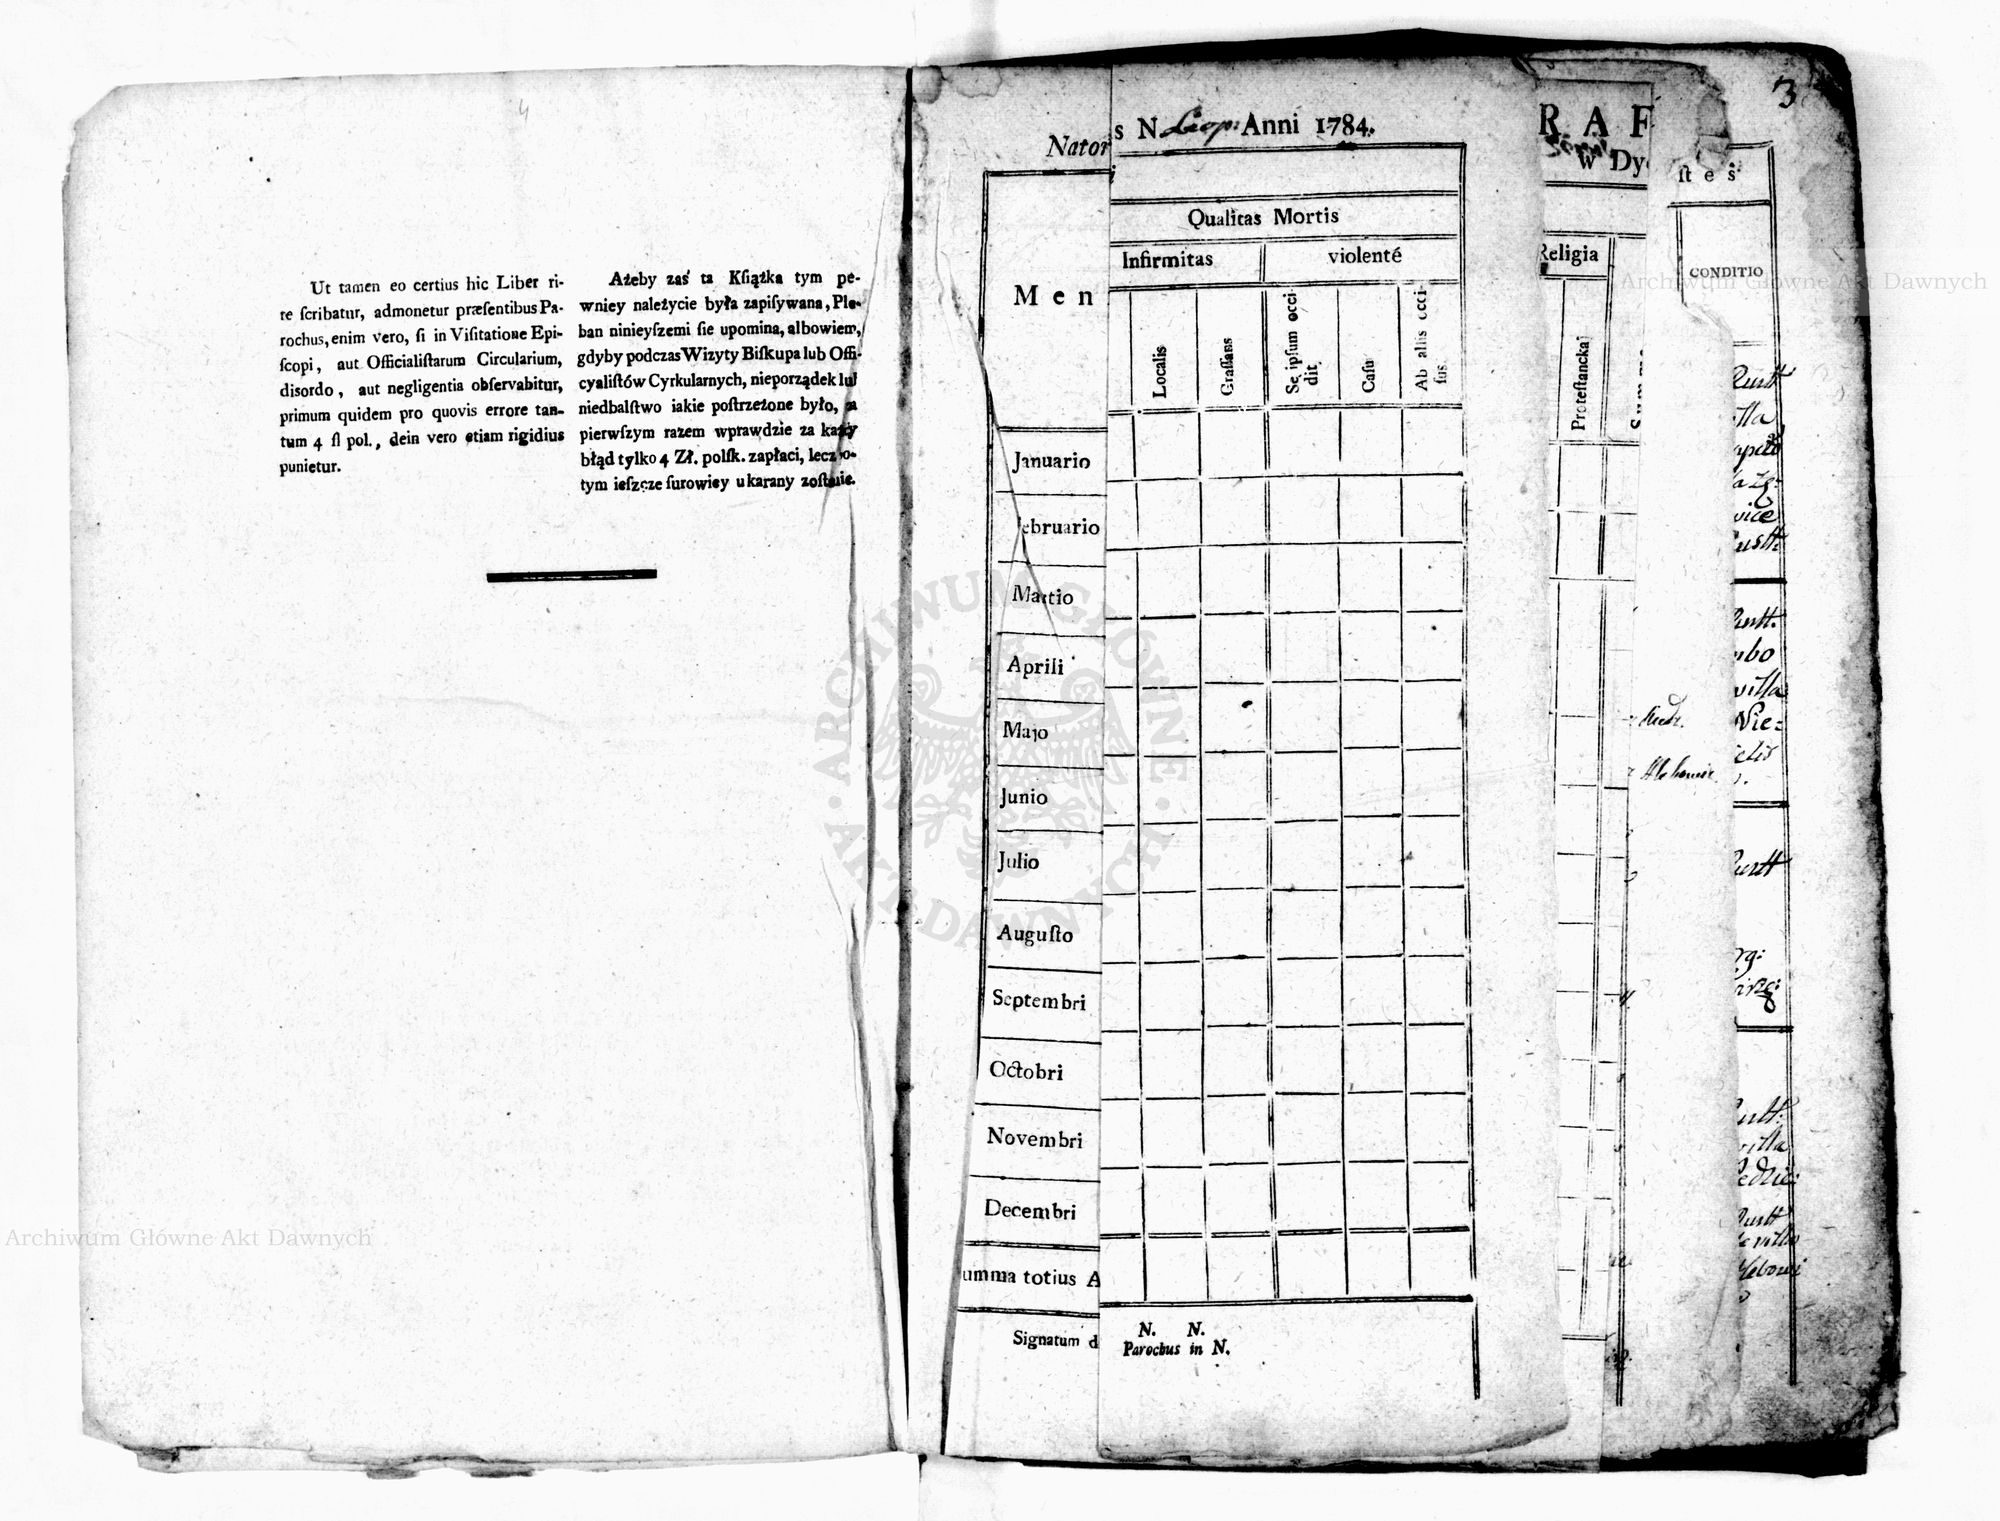 4
Ut tamen eo certius hic Liber ri-
te ſcribatur, admonetur præſentibus Pa-
rochus, enim vero, ſi in Viſitatione Epi-
ſcopi, aut Officialiſtarum Circularium,
disordo, aut negligentia obſervabitur,
primum quidem pro quovis errore tan-
tum 4 fl pol., dein vero etiam rigidius
punietur.
Ażeby zaś ta Kſiążka tym pe-
wniey należycie była zapiſywana, Ple-
ban ninieyſzemi ſie upomina, albowiem,
gdyby podczas Wizyty Biſkupa lub Offi-
cyaliſtów Cyrkularnych, nieporządek lub
niedbalſtwo iakie poſtrzeżone było, za
pierwſzym razem wprawdzie za każdy
błąd tylko 4 Zł. polſk. zapłaci, lecz po-
tym ieſzcze ſurowiey ukarany zoſtanie.
Nator
Men
Januario
ebruario
Martio
Aprili
Majo
Junio
Julio
Auguſto
Septembri
Octobri
Novembri
Decembri
umma totius A
Signatum d
s N. Anni 1784.
Qualitas Mortis
Infirmitas violenté
Localis
Graſſans
Se ipſum occi-
dit
Caſu
Ab aliis occi-
ſus
N. N.
Parochus in N.
R A F
w Dy
Religia
Proteſtancka
3
ſtes
CONDITIO
villa
Archiwum Główne Akt Dawnych
Archiwum Główne Akt Dawnych
ARCHIWUM GŁÓWNE
AKT DAWNYCH